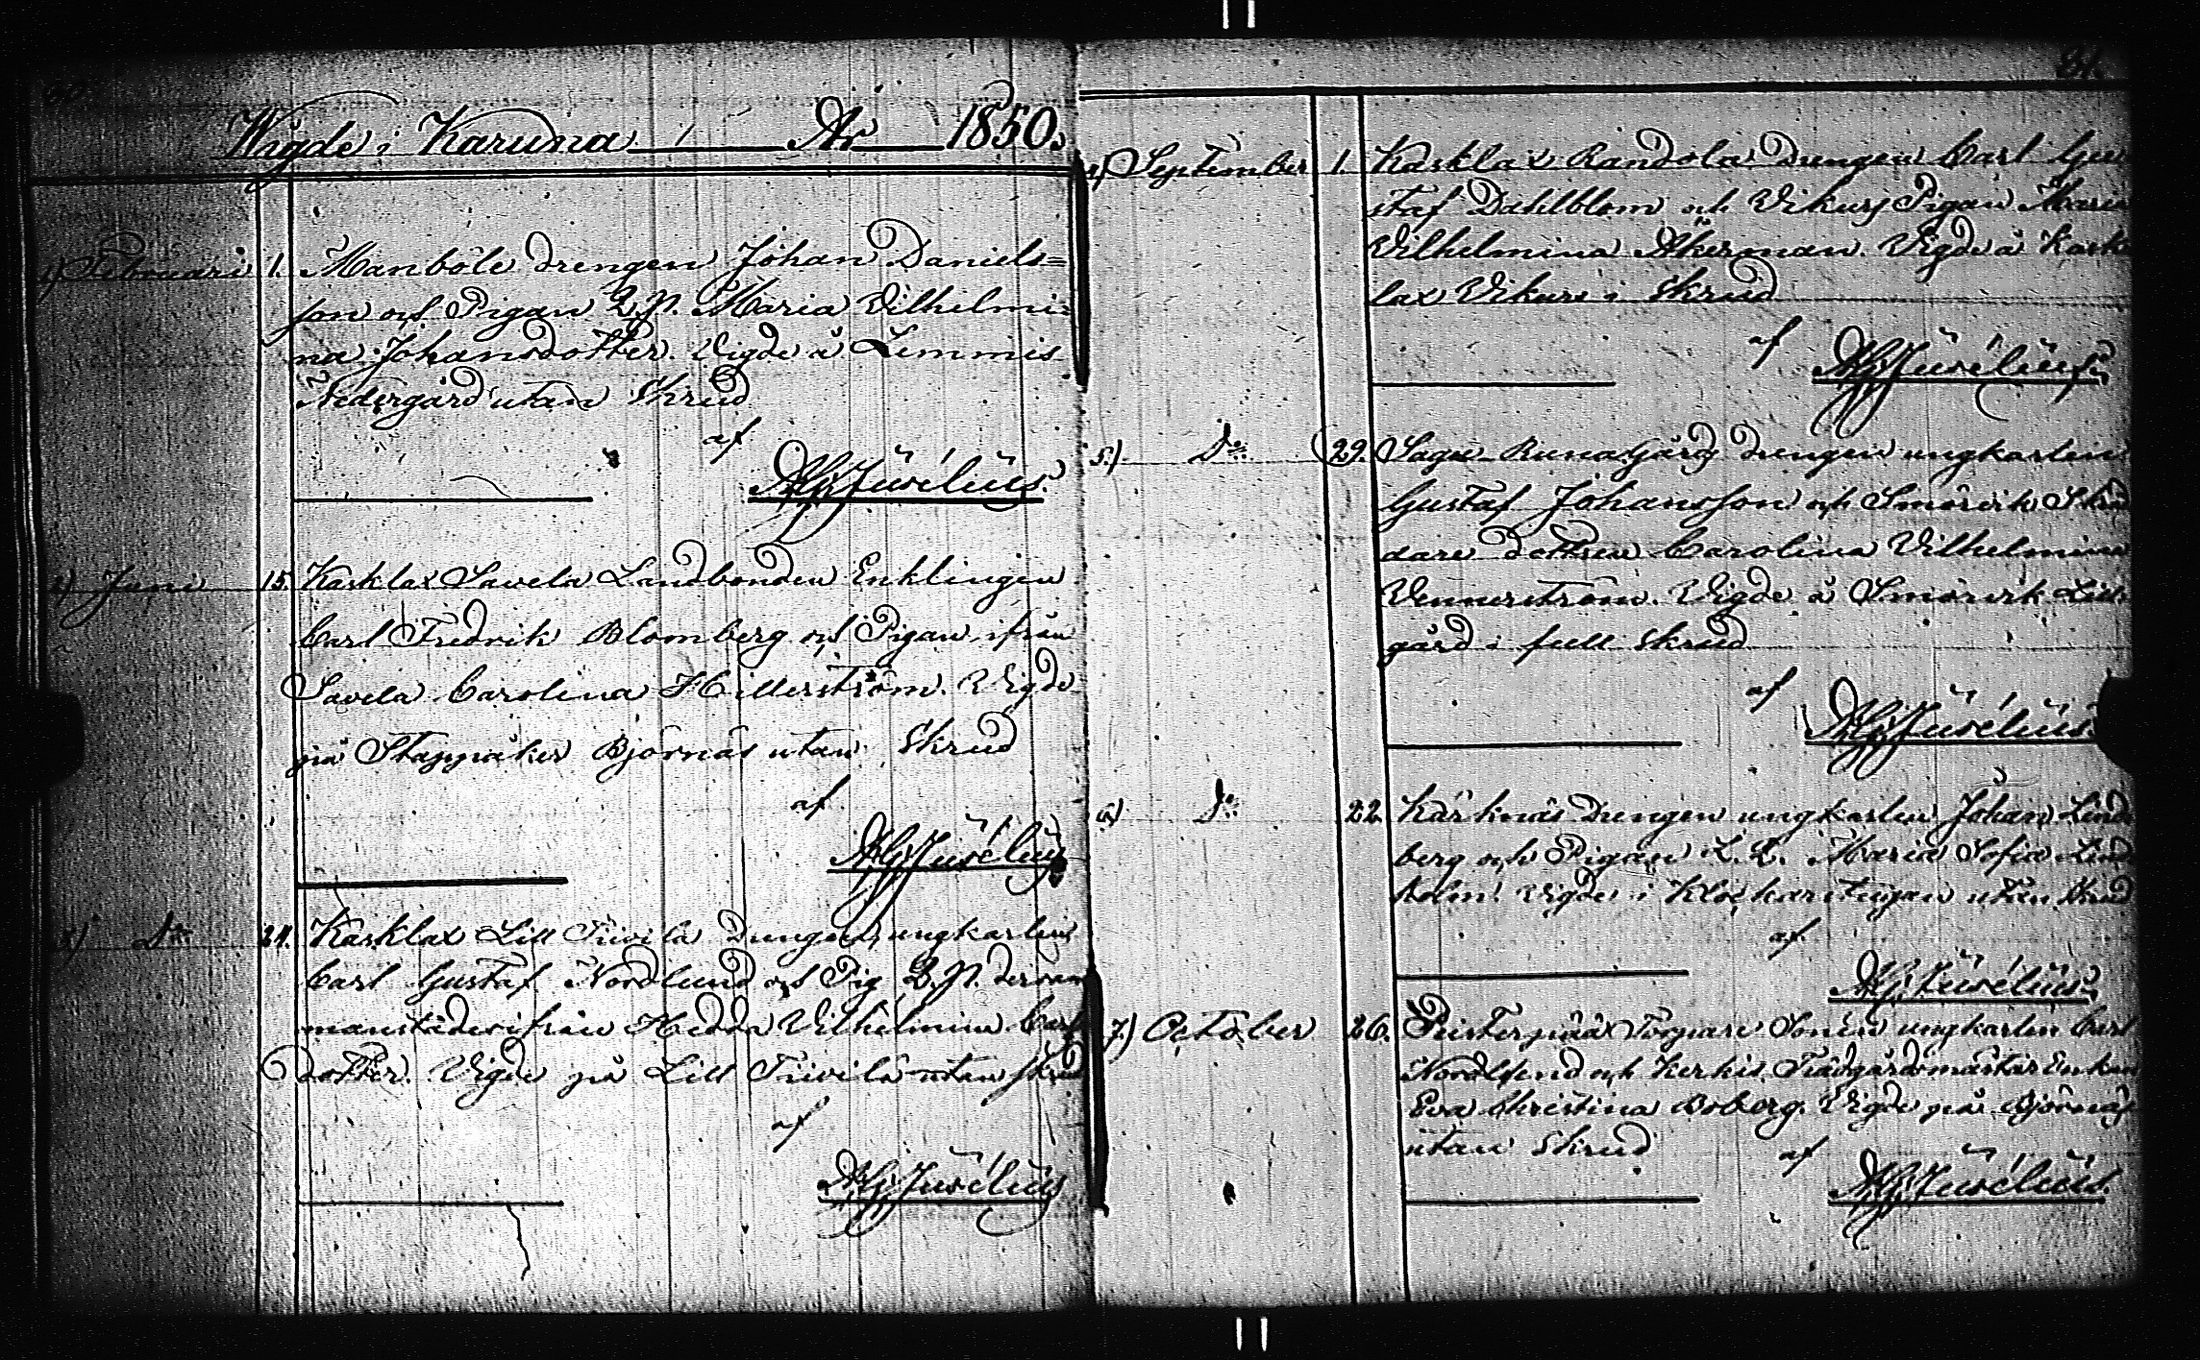 60.
Wigde i Karuna År 1850.
1) Februari 1. Manböle drengen Johan Daniels=
son och Pigan Q.P. Maria Vilhelmi=
na Johansdotter. Vigde å Lemmis
Nedergård utan Skrud
af
AGJusélius
2) Juni 15. Karklax Savela Landbonden Enklingen
Carl Fredrik Blomberg och Pigan ifrån
Savela Carolina Hillerström. Vigde
på Stappåker Björnäs utan Skrud
af
AGJusélius
3) Do 24. Karklax Lill Tiivilä Drengen, ungkarlen
Carl Gustaf Nordlund och Pig Q.P.
Hedda Vilhelmina Carls
dotter. Vigde på Lill Tiivilä utan skrud
af
AGJusélius
61.
4) September 1. Karklax Randola Drengen Carl Gu
staf Dahlblom och Vikurs Pigan Maria
Vilhelmina Åkerman. Vigde å Kark
lax Vikurs i Skrud
af
AGJusélius
5.) Do 29. Sagu Runagård Drengen ungkarlen
Gustaf Johansson och Smörvik Skräd
dare dottren Carolina Vilhelmina
Vennerström. Vigde å Smörvik Lill
gård i full Skrud
af
AGJusélius
6) Do 22. Kärknäs Drengen ungkarlen Johan Lind
berg och Pigan Maria Sofia Lind
holm. Vigde i Klockarstugan utan Skrud
af
AGJusélius
7.) October 26. Torpare Sonen ungkarlen Carl
Nordlund och Kerkis Trädgårdsmästar Enkan
Eva Christina Boberg. Vigde på Björnäs
utan Skrud
af
AGJusélius